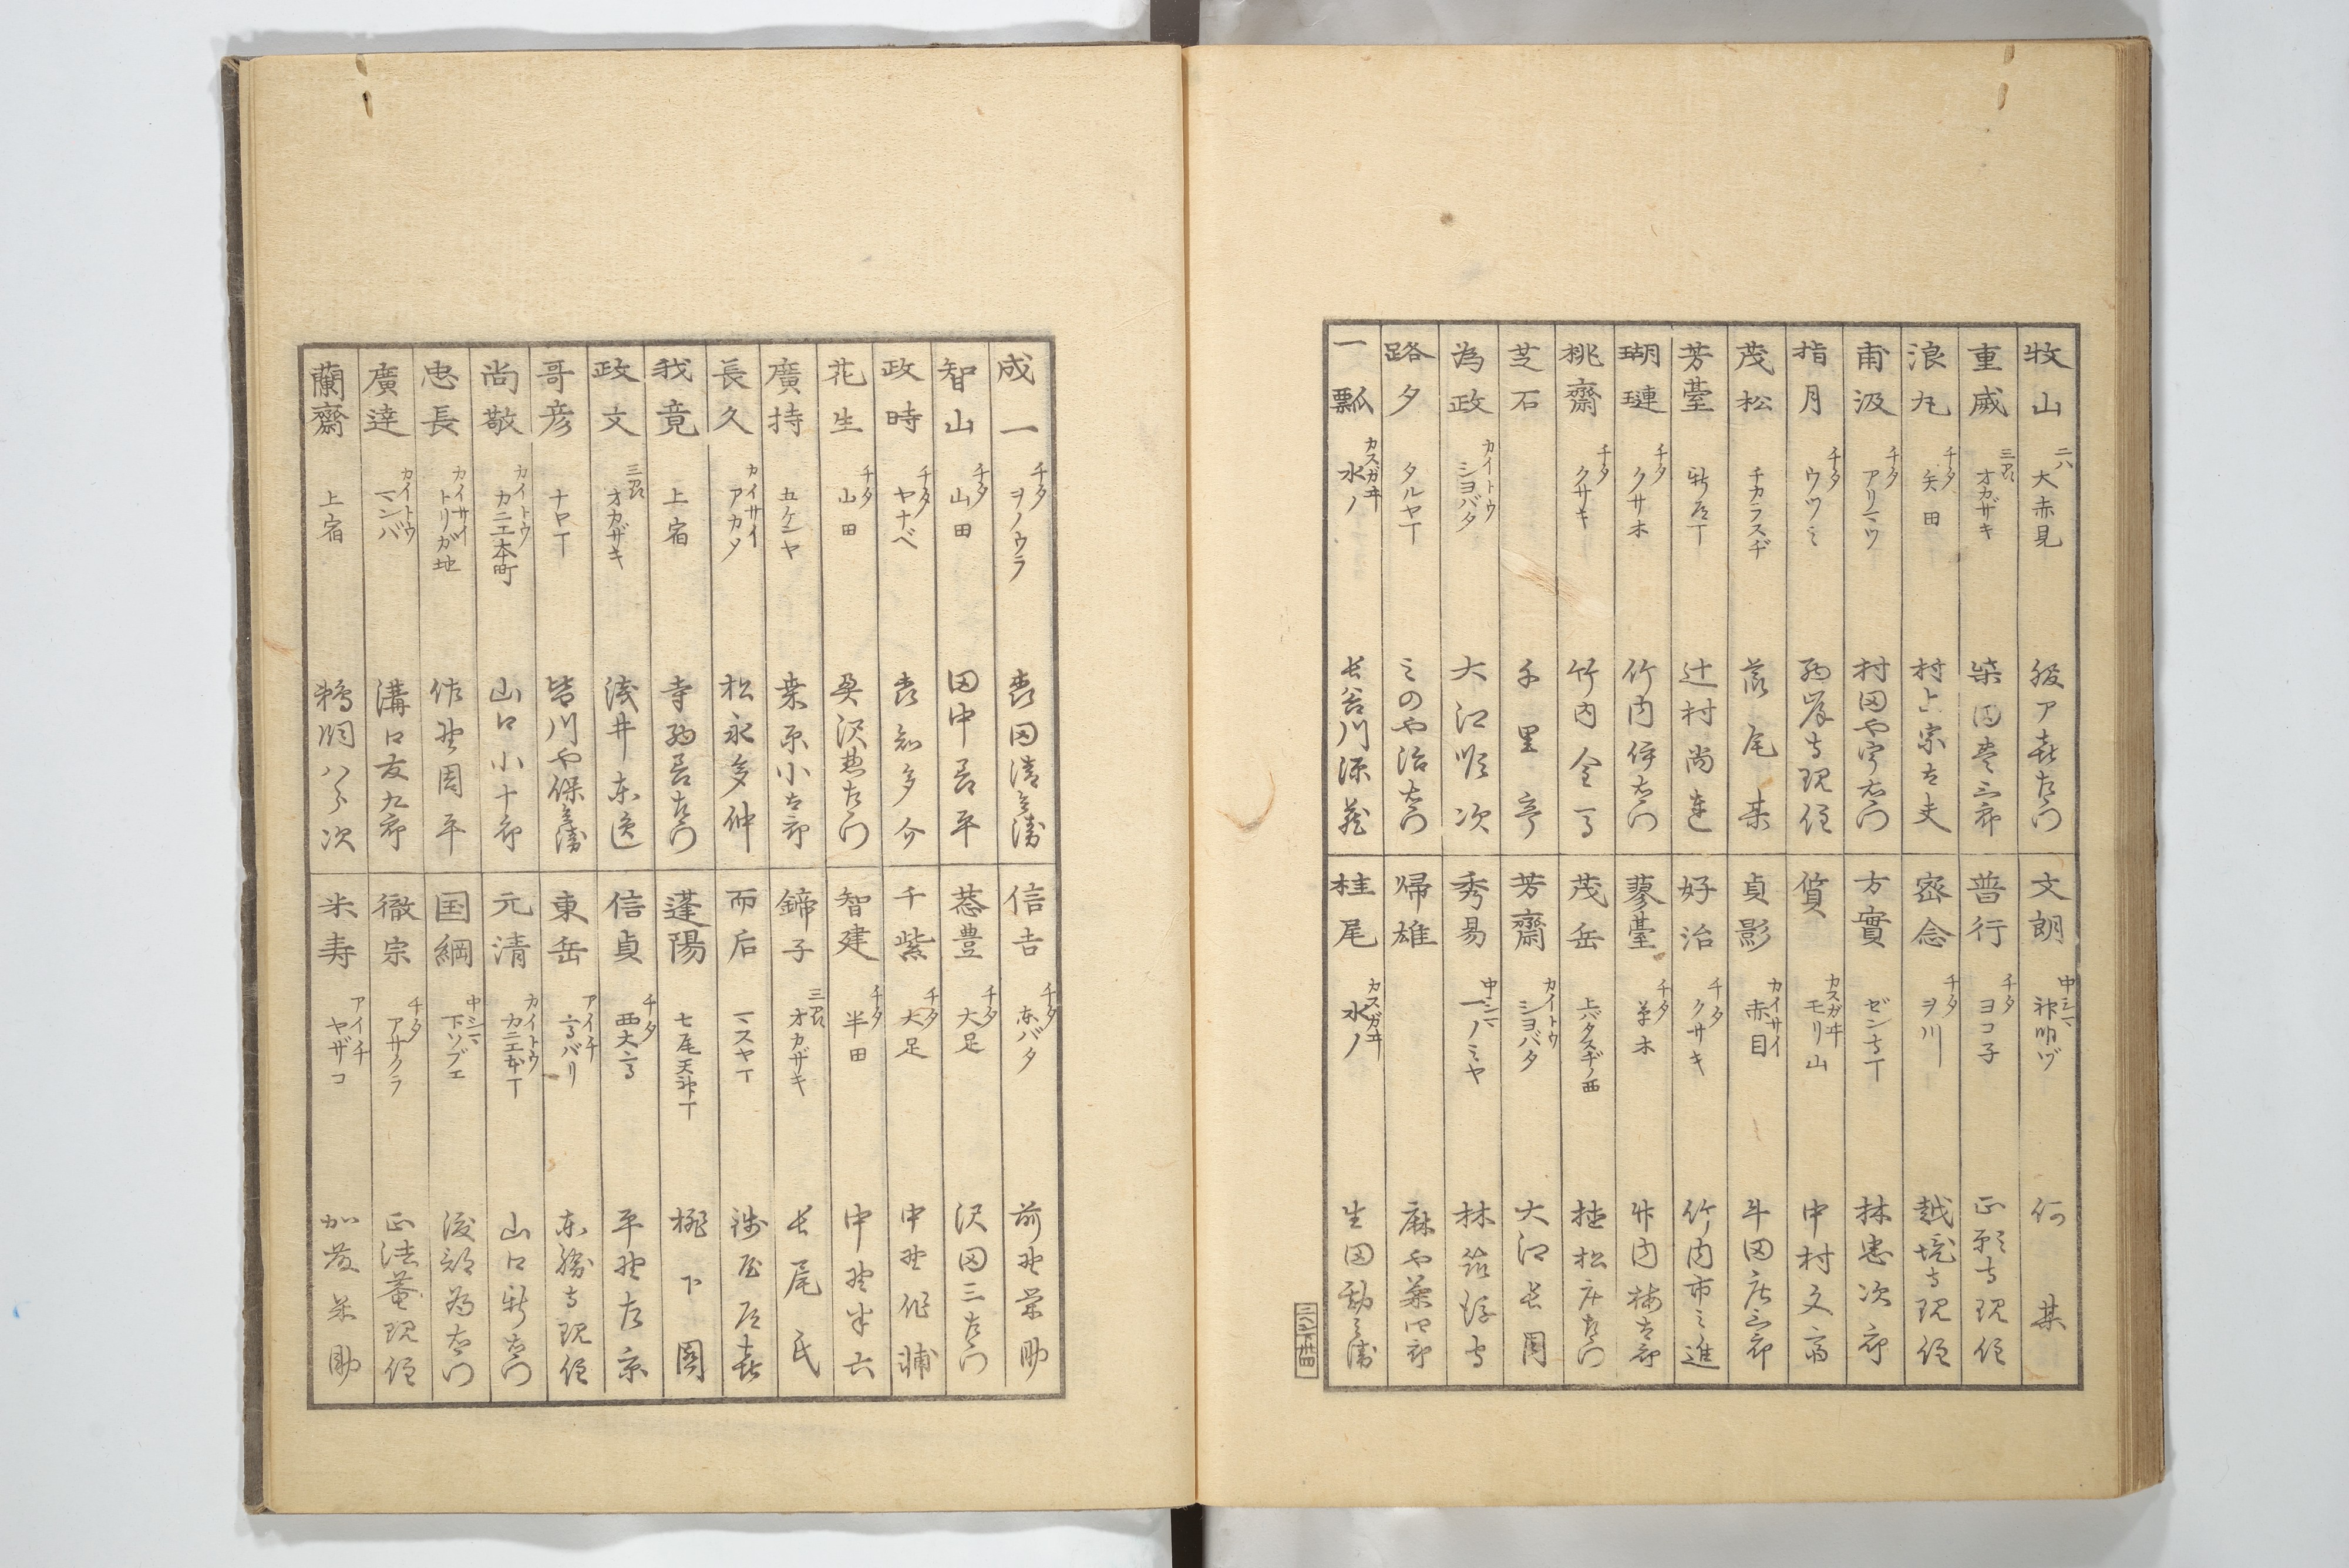 牧山 二八 大赤見 服ア喜左門
重威 三州 オカザキ 柴田壱三郎
浪丸 チタ 矢田 村上宗太夫
甫汲 チタ アリマツ 村田や宇右門
指月 チタ ウツミ 現住
茂松 チカラスヂ 尾 某
芳臺 新丁 辻村尚連
瑚璉 チタ クサ木 竹内伊右門
桃齋 チタ クサキ 竹内全
芝石 千里亭
為政 カイトウ シヨバタ 大江順次
路夕 タルヤ丁 ミのや治左門
一瓢 カスガヰ 水ノ 長谷川源蔵
文朗 中シマ 神明ヅ 何 某
普行 チタ ヨコ子 正願寺現住
密念 チタ ヲ川 越境寺現住
方實 ゼンキ丁 林忠次郎
貨 カスガヰ モリ山 中村文斎
貞影 カイサイ 赤目 斗田庄三郎
好治 チタ クサキ 竹内市之進
蓼臺 チタ 草木 竹内梅太郎
茂岳 上バタスヂノ西 植松庄左門
芳齋 カイトウ シヨバタ 大江長周
秀易 中シマ 一ノミヤ 林
帰雄 麻や菊四郎
桂尾 カスガヰ 水ノ 生田勘兵衛
成一 チタ ヲノウラ 森田清兵衛
智山 チタ 山田 田中善平
政時 チタ ヤナベ 森知多介
花生 チタ 山田 奥沢恵左門
廣持 五ケンヤ 桑原小太郎
長久 カイサイ アカメ 松永多仲
我竟 上宿 寺西善左門
政文 三州 オカザキ 浅井東逸
哥彦 ナロ丁 皆川や保兵衛
尚敬 カイトウ カニエ本町 山口小十郎
忠長 カイサイ トリガ地 佐野周平
廣達 カイトウ マンバ 溝口友九郎
蘭齋 上宿 鵜飼八次
信吉 チタ 東バタ 前野栄助
恭豊 チタ 大足 沢田三左門
千紫 チタ 大足 中野作輔
智建 チタ 半田 中野半六
鍗子 三州 オカザキ 長尾氏
而后 マスヤ丁 喜
蓬陽 七尾天神丁 桃下園
信貞 チタ 西大高 平野左京
東岳 アイチ 高バリ 東勝寺現住
元清 カイトウ カニエ本丁 山口新右門
国綱 中シマ 下ソブエ 渡部為右門
徹宗 チタ アサクラ 正法菴現住
米寿 アイチ ヤザコ 加藤米助